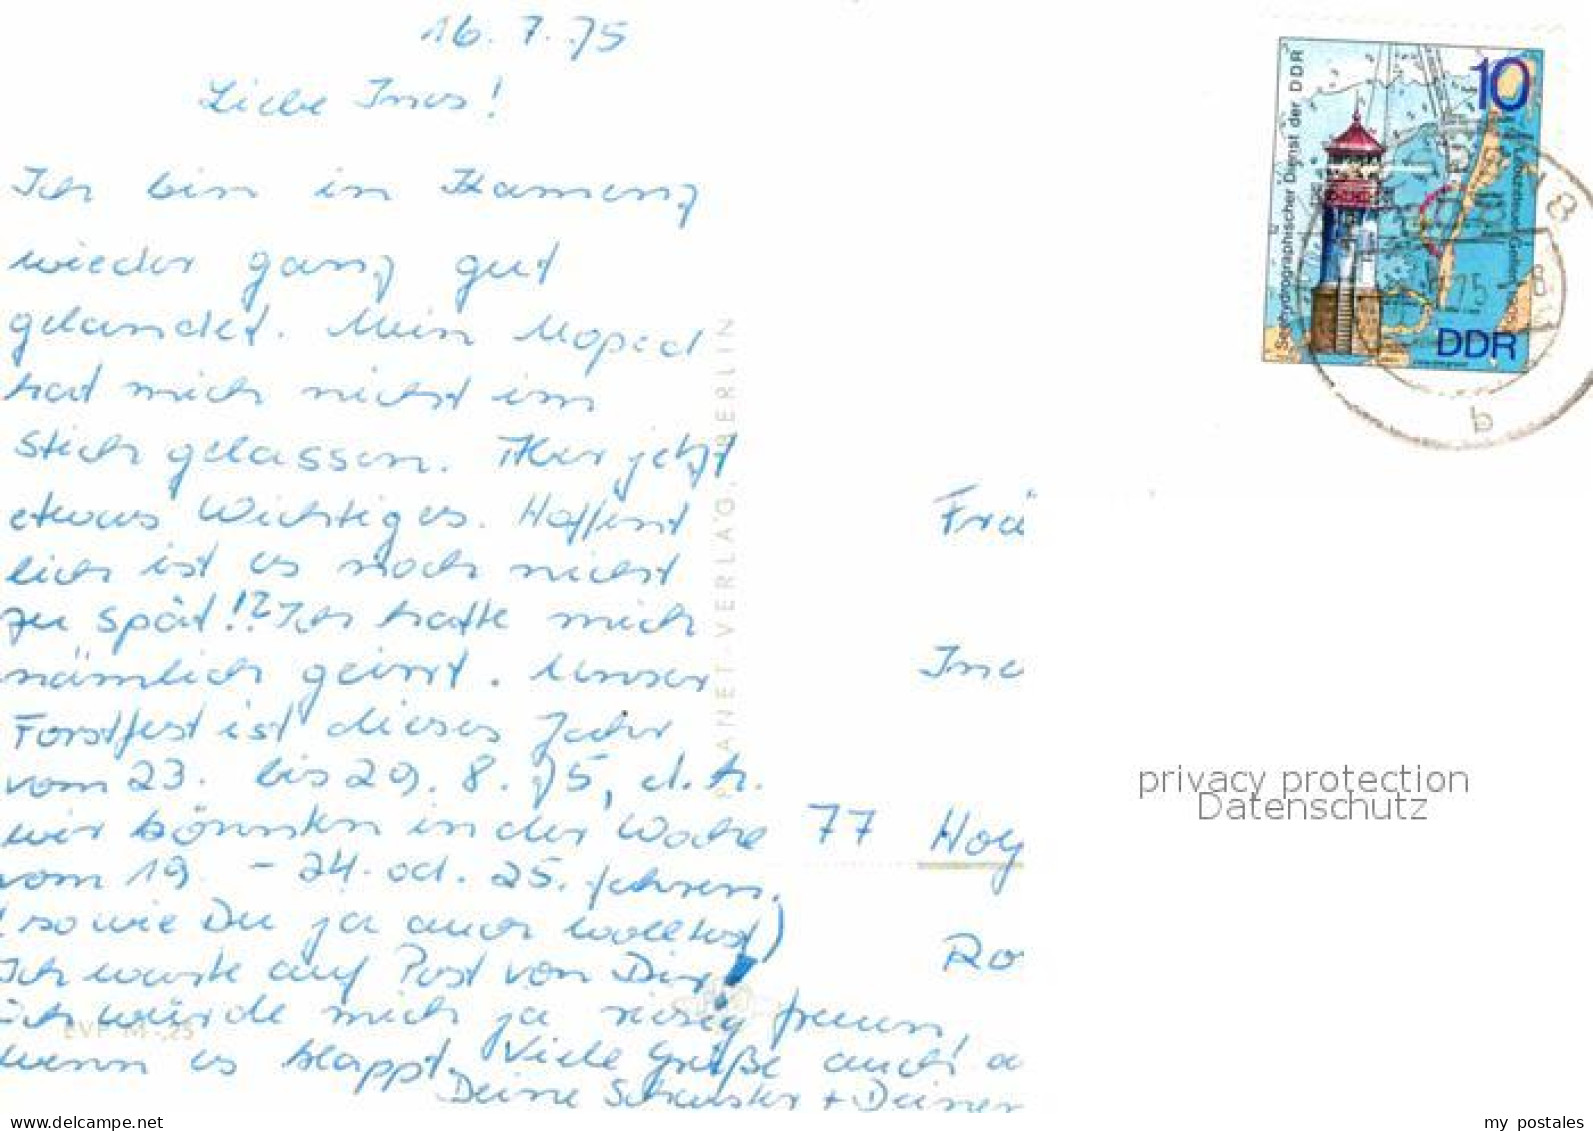 16. 7. 75
Liebe Ines!
Ich bin in Kamenz
wieder ganz gut
gelandet. Mein Moped
hat mich nicht im
Stich gelassen. Aber jetzt
etwas Wichtiges. Hoffent
lich ist es noch nicht
zu spät!? Ich hatte mich
nämlich geirrt. Unser
Forstfest ist dieses Jahr
vom 23. bis 29. 8. 75, d. h.
wir könnten in der Woche
vom 19. - 24. od. 25. fahren.
(so wie Du ja auch wolltest)
Ich warte auf Post von Dir!
ich würde mich ja riesig freuen,
wenn es klappt. Viele Grüße auch a
Deine Schwester + Deiner
PLANET-VERLAG, BERLIN
EVP M -,25
Frä
Ine
77 Hoy
Ro
10
Seehydrographischer Dienst der DDR
DDR
75
8
b
privacy protection
Datenschutz
www.delcampe.net
my_postales